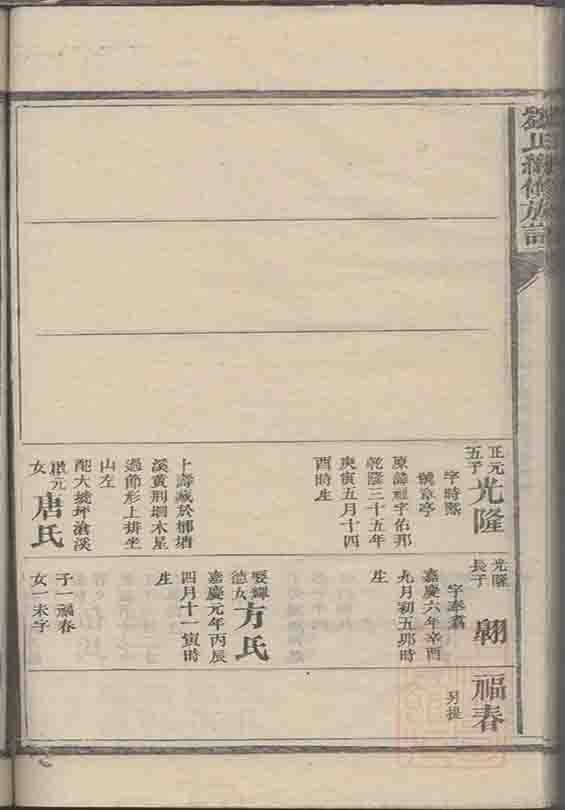 正元
五子
光隆
字時熙
號章亭
原諱祖字佑邦
乾隆三十五年
庚寅五月十四
酉時生
上壽藏於㮾塘
溪黄荆堋木星
過節形上排坐
山左
配大墟坪滄溪
女
唐氏
光隆
長子
翱
字奉翥
嘉慶六年辛酉
九月初五卯時
生
娶輝
德女
方氏
嘉慶元年丙辰
四月十一寅時
生
子一福春
女一未字
福春
另提